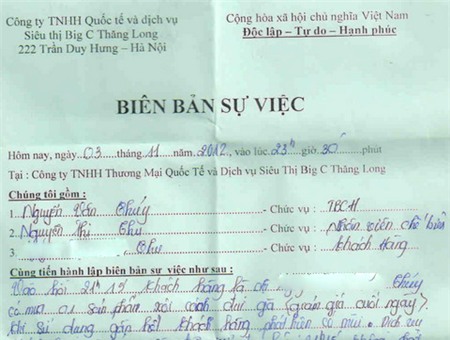 Công ty TNHH Quốc tế và dịch vụ
Siêu thị Big C Thăng Long
222 Trần Duy Hưng – Hà Nội
Cộng hòa xã hội chủ nghĩa Việt Nam
Độc lập – Tự do – Hạnh phúc
BIÊN BẢN SỰ VIỆC
Hôm nay, ngày 03 tháng 11 năm 2012, vào lúc 23h giờ 30 phút
Tại : Công ty TNHH Thương Mại Quốc Tế và Dịch Vụ Siêu Thị Big C Thăng Long
Chúng tôi gồm :
1. Nguyễn Văn Thúy - Chức vụ : TBCH
2. Nguyễn Thị Thu - Chức vụ : Nhân viên chế biến
3. Thu - Chức vụ : Khách Hàng
Cùng tiến hành lập biên bản sự việc như sau :
Vào hồi 21h15 khách hàng là Thúy
có mua sản phẩm xôi giá (giảm giá cuối ngày)
khi sử dụng gần hết khách hàng phát hiện có mùi